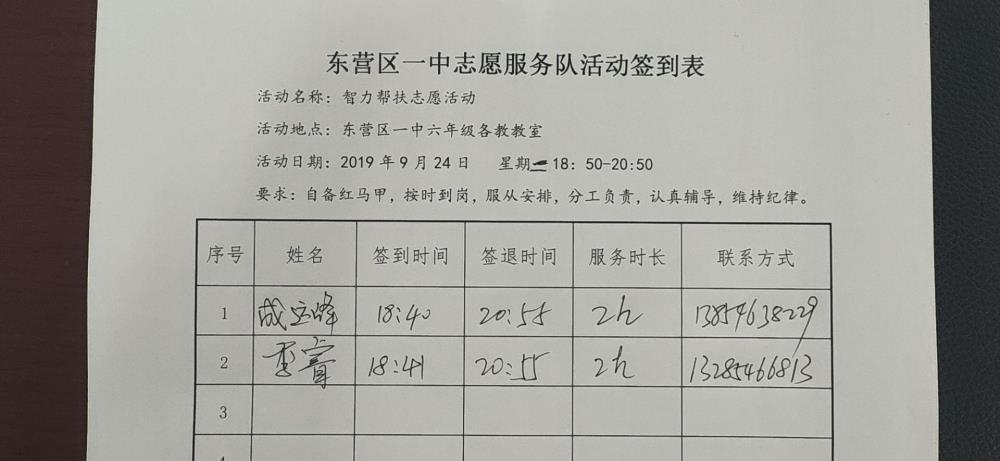 东营区一中志愿服务队活动签到表
活动名称：智力帮扶志愿活动
活动地点：东营区一中六年级各教教室
活动日期：2019 年 9 月 24 日 星期二 18：50-20:50
要求：自备红马甲，按时到岗，服从安排，分工负责，认真辅导，维持纪律。
序号 姓名 签到时间 签退时间 服务时长 联系方式
1 成立峰 18:40 20:55 2h 13854638229
2 李 18:41 20:55 2h 13285466813
3